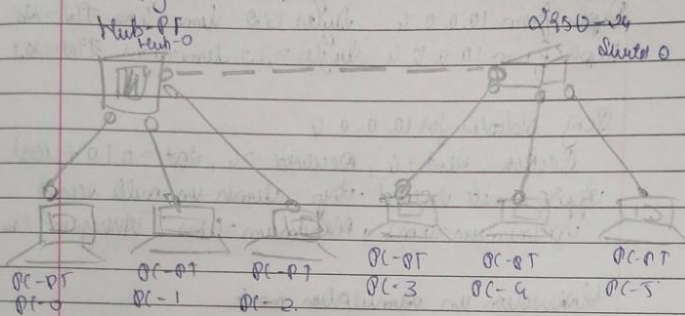 Hub-PT
Hub-0
2950-24
Switch 0
PC-PT
PC-0
PC-PT
PC-1
PC-PT
PC-2
PC-PT
PC-3
PC-PT
PC-4
PC-PT
PC-5